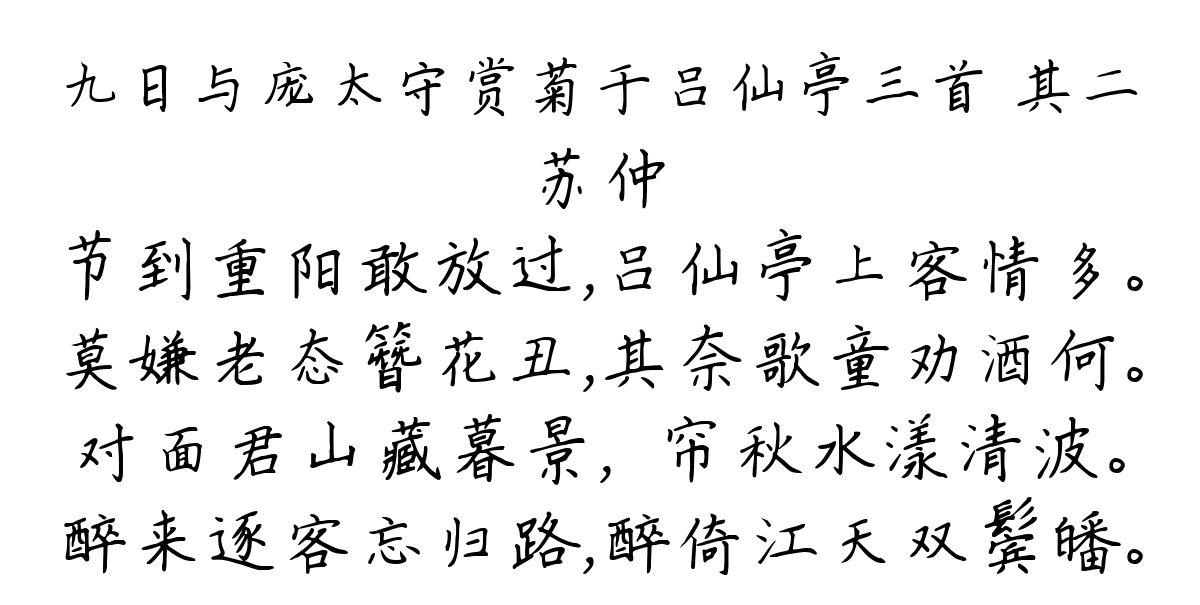 九日与庞太守赏菊于吕仙亭三首 其二
苏仲
节到重阳敢放过,吕仙亭上客情多。
莫嫌老态簪花丑,其奈歌童劝酒何。
对面君山藏暮景，帘秋水漾清波。
醉来逐客忘归路,醉倚江天双鬓皤。